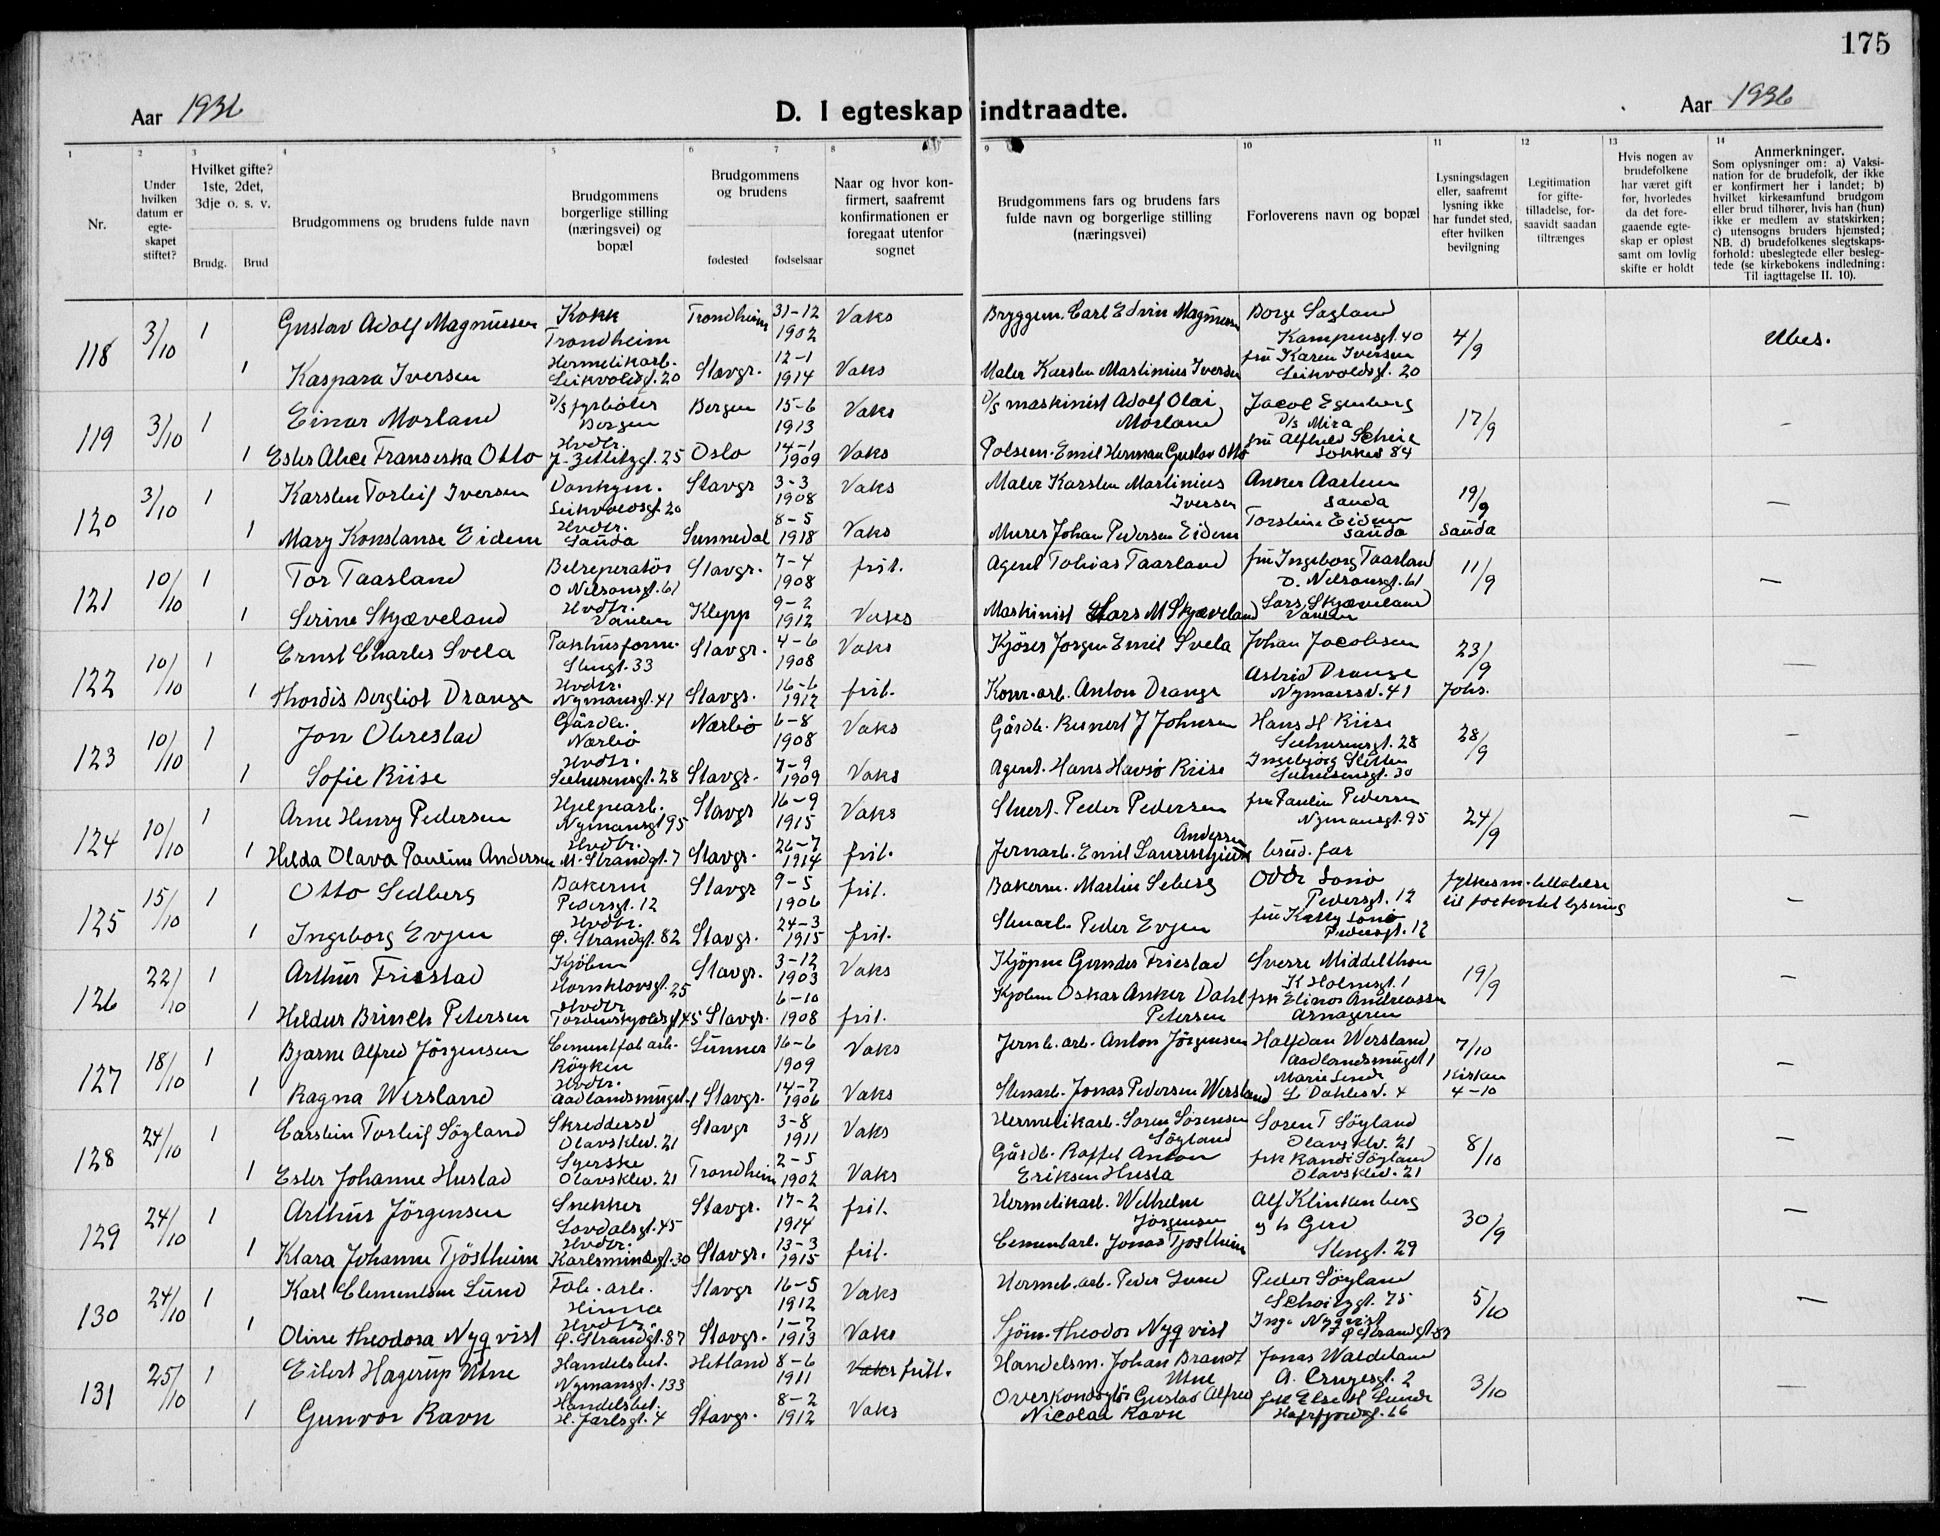 175
Aar 1936
D. I egteskap indtraadte.
Aar 1936
1 2 3 4 5 6 7 8 9 10 11 12 13 14
Nr.
Under hvilken datum er egteskapet stiftet?
Hvilket gifte? 1ste, 2det, 3dje o. s. v.
Brudg. Brud
Brudgommens og brudens fulde navn
Brudgommens borgerlige stilling (næringsvei) og bopæl
Brudgommens og brudens
fødested fødselsaar
Naar og hvor konfirmert, saafremt konfirmationen er foregaat utenfor sognet
Brudgommens fars og brudens fars fulde navn og borgerlige stilling (næringsvei)
Forloverens navn og bopæl
Lysningsdagen eller, saafremt lysning ikke har fundet sted, efter hvilken bevilgning
Legitimation for giftetilladelse, forsaavidt saadan tiltrænges
Hvis nogen av brudefolkene har været gift før, hvorledes da det foregaaende egteskap er opløst samt om lovlig skifte er holdt
Anmerkninger.
Som oplysninger om: a) Vaksination for de brudefolk, der ikke er konfirmert her i landet; b) hvilket kirkesamfund brudgom eller brud tilhører, hvis han (hun) ikke er medlem av statskirken; c) utensogns bruders hjemsted; NB. d) brudefolkenes slegtskapsforhold: ubeslegtede eller beslegtede (se kirkebokens indledning: Til iagttagelse II. 10).
118 3/10 1 Gustav Adolf Magnussen Kokk Trondheim Trondheim 31-12 1902 Vaks Bryggem. Carl Edvin Magnussen Borge Sagland Kampensgt. 40 4/9 Ubes.
1 Kaspara Iversen Hermetikarb. Leikvoldsgt. 20 Stavgr. 12-1 1914 Vaks Maler Karsten Martinius Iversen fru Karen Iversen Leikvoldsgt. 20
119 3/10 1 Einar Morland D/s fyrbøter Bergen Bergen 15-6 1913 Vaks D/s maskinist Adolf Olai Morland Jacob Egenberg D/s Mira 17/9 -
1 Ester Alice Franseska Otto Hvdtr. J. Zetlitzgt. 25 Oslo 14-1 1909 Vaks Pølsem. Emil Herman Gustav Otto fru Alfhild Scheie Lokkev 84
120 3/10 1 Karsten Torleif Iversen Leikvoldsgt. 20 Stavgr 3-3 1908 Vaks Maler Karsten Martinius Iversen Anker Aartun Sauda 19/9 -
1 Mary Konstanse Eidem Hvdtr. Sauda Sunnedal 8-5 1918 Vaks Murer Johan Pedersen Eidem Torstein Eidem Sauda Sauda
121 10/10 1 Tor Taasland Belreperatør O Nilsonsgt. 61 Stavgr. 7-4 1908 frit. Agent Tobias Taarland fru Ingeborg Taarland O. Nilsonsgt. 61 11/9 -
1 Serine Skjæveland Hvdtr. Vaulen Klepp 9-2 1912 Vaks Maskinist Lars M Skjæveland Lars Skjæveland Vaulen
122 10/10 1 Ernst Charles Svela Pakhusform. Stengt. 33 Stavgr. 4-6 1908 Vaks Kjører Jørgen Emil Svela Johan Jacobsen 23/9 -
1 Thordis Bergliot Drange Hvdtr. Nymansgt. 41 Stavgr. 16-6 1912 frit. Konr. arb. Anton Drange Astrid Drange Nymansv. 41 Johs.
123 10/10 1 Jon Obrestad Gårdbr. Nærbø Nærbø 6-8 1908 Vaks Gårdb. Reinert J Johnsen Hans H Riise Seehusensgt. 28 28/9 -
1 Sofie Riise Hvdtr. Seehusensgt. 28 Stavgr. 7-9 1909 Vaks Agent. Hans Havsø Riise Ingebjørg Sletten Seehusensgt. 30
124 10/10 1 Arne Henry Pedersen Hjelpearb. Nymansgt 95 Stavgr 16-9 1915 Vaks Stuert. Peder Pedersen fru Paulin Pedersen Nymansgt. 95 24/9 -
1 Hilda Olava Pauline Andersen Hvdtr. M. Strandgt. 7 Stavgr. 26-7 1914 frit. Jernarb. Emil Andersen brud. far
125 15/10 1 Otto Sedberg Bakerm Pedersgt. 12 Stavgr 9-5 1906 frit. Bakerm. Martin Seberg Odde Sonø Pedersgt. 12 fylkesm. tillatelse til forkortet lysning -
1 Ingeborg Evjen Hvdtr. Ø. Strandgt. 82 Stavgr. 24-3 1915 frit. Stenarb. Peder Evjen fru Kitty Sonø Pedersgt. 12
126 22/10 1 Arthur Friestad Kjøbm Hornklovsgt. 25 Stavgr. 3-12 1903 Vaks Kjøpm Gunder Friestad Sverre Middelthon K Holmsgt. 1 19/9 -
1 Hildur Brinch Petersen Hvdtr Tordenskjoldsgt 45 Stavgr. 6-10 1908 frit. Kjøbm Oskar Anker Dahl Petersen frk Elinor Andreassen Arnageren
127 18/10 1 Bjarne Alfred Jørgensen Cementfab arb. Røyken Lunner 16-6 1909 Vaks Jernb. arb. Anton Jørgensen Halfdan Wersland Aadlandsmuget 1 7/10 -
1 Ragna Wersland Hvdtr. Aadlandsmuget. 1 Stavgr. 14-7 1906 Vaks Stenarb. Jonas Pedersen Wersland Marie Lende L Dahlesv. 4 Kirken 4-10
128 24/10 1 Carstein Torleif Søyland Skreddersv Olavsklev. 21 Stavgr 3-8 1911 Vaks Hermetikarb. Soren Sørensen Søyland Soren T Søyland Olavsklv. 21 8/10 -
1 Ester Johanne Hustad Syerske Olavsklev. 21 Trondheim 2-5 1902 Vaks Gårdb. Roffel Anton Eriksen Husta frk Randi Søyland Olavsklev. 21
129 24/10 1 Arthur Jörgensen Snekker Lovdalsgt. 45 Stavgr. 17-2 1914 frit. Hermetikarb. Wilhelm Jorgensen Alf Klinkenberg 30/9 -
1 Klara Johanne Tjöstheim Hvdtr. Karlsmindegt. 30 Stavgr. 13-3 1915 frit. Cementarb. Jonas Tjostheim og fr Gerd Stengt. 29
130 24/10 1 Karl Clementsen Lund Fab. arb. Hinna Stavgr 16-5 1912 Vaks Hermet. arb. Peder Lund Peder Søyland Schoitzgt. 75 5/10 -
1 Oline Theodora Nyqvist Hvdtr. Ø. Strandgt. 87 Stavgr. 1-7 1913 Vaks Sjöm. Theodor Nyqvist Inga Nyqvist Ø Strandgt. 87
131 25/10 1 Eilert Hagerup Utne Handelsbet. Nymansgt. 133 Hetland 8-6 1911 Vaks fritt. Handelsm. Johan Brandt Utne Jonas Waldeland A. Crugesgt. 2 3/10
1 Gunvor Ravn Handelsbet. H. Jarlsgt. 4 Stavgr. 8-2 1912 Vaks Overkonduktør Gustav Alfred Nicolai Ravn frk Else M Lunde Hafrfjordgt. 66